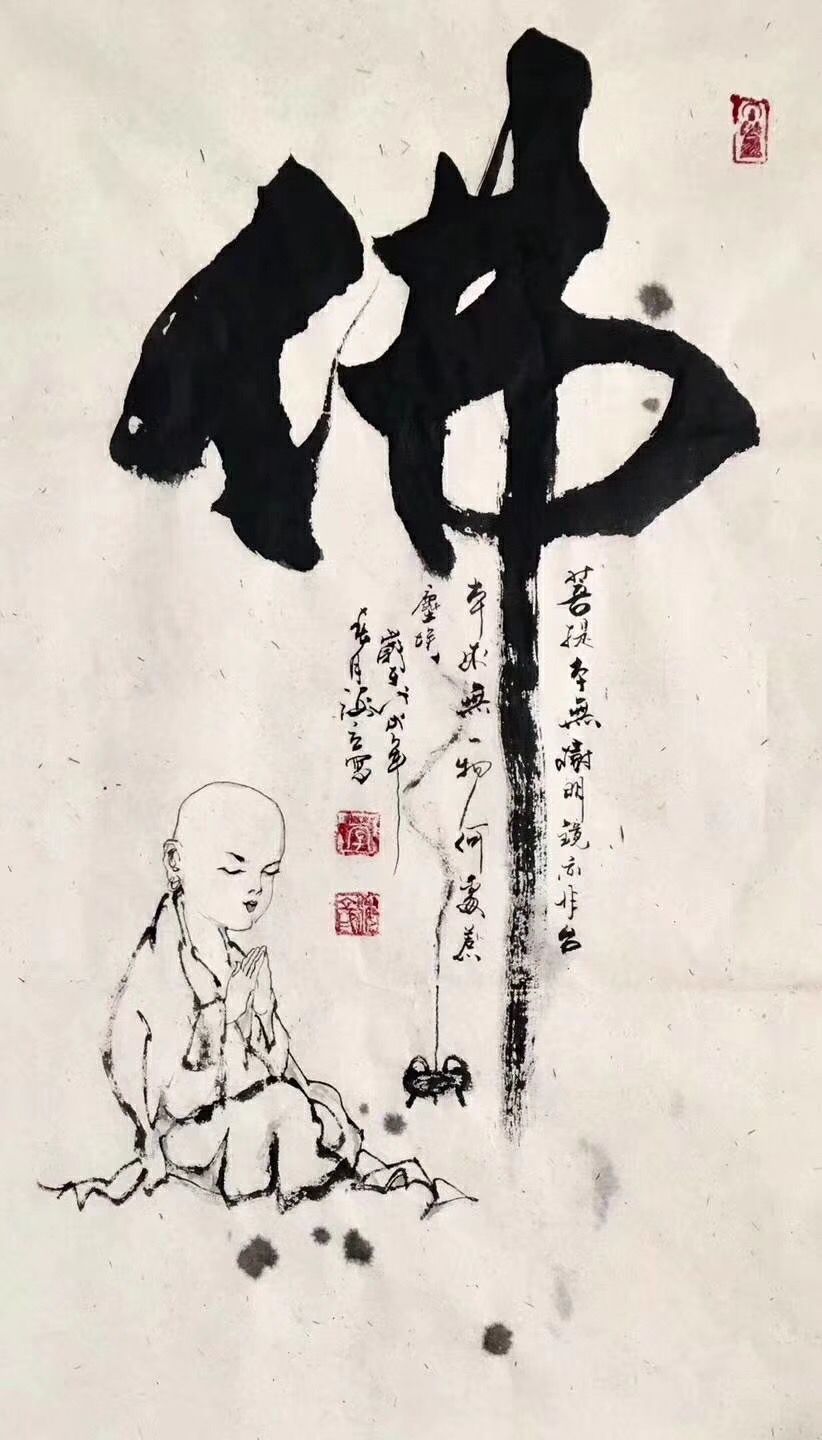 佛
菩提本無樹明鏡亦非台
本來無一物何處惹
塵埃
歲戊戌年
春月寫